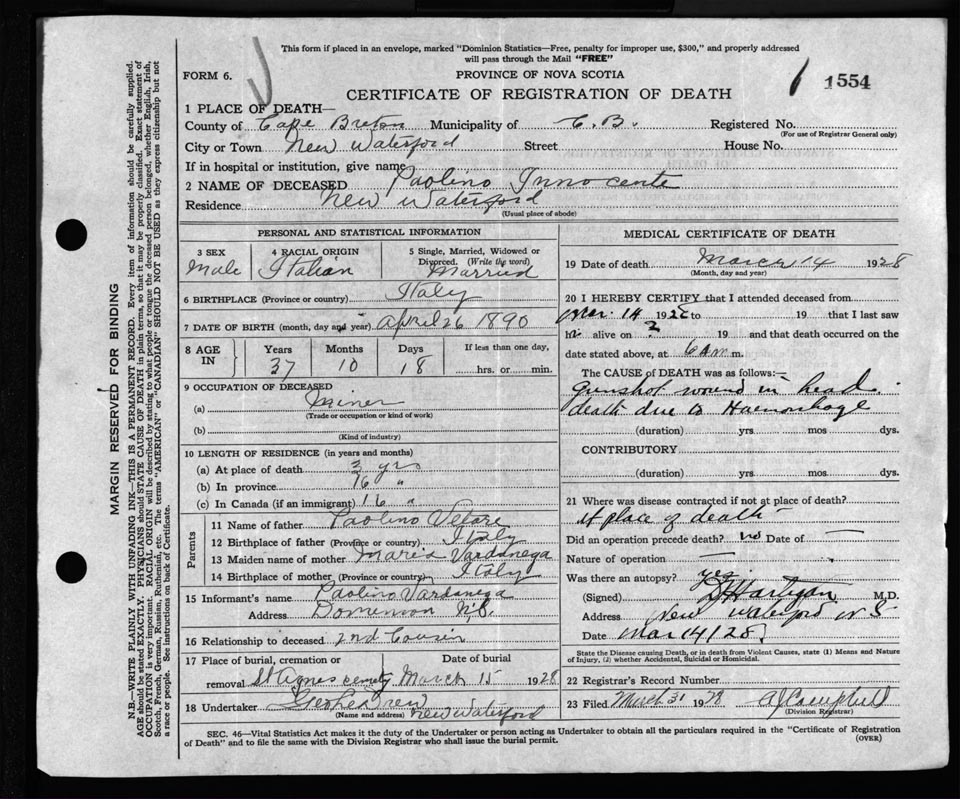 This form if placed in an envelope, marked "Dominion Statistics—Free, penalty for improper use, $300," and properly addressed
will pass through the Mail "FREE"
FORM 6.
PROVINCE OF NOVA SCOTIA
1554
CERTIFICATE OF REGISTRATION OF DEATH
1 PLACE OF DEATH—
County of Cape Breton Municipality of C.B. Registered No.
(For use of Registrar General only)
City or Town New Waterford Street House No.
If in hospital or institution, give name
2 NAME OF DECEASED Paolino Innocente
Residence New Waterford
(Usual place of abode)
PERSONAL AND STATISTICAL INFORMATION
3 SEX Male
4 RACIAL ORIGIN Italian
5 Single, Married, Widowed or Divorced. (Write the word) Married
6 BIRTHPLACE (Province or country) Italy
7 DATE OF BIRTH (month, day and year) April 26 1890
8 AGE IN Years Months Days If less than one day,
37 10 18 hrs. or min.
9 OCCUPATION OF DECEASED
(a) Miner
(Trade or occupation or kind of work)
(b)
(Kind of industry)
10 LENGTH OF RESIDENCE (in years and months)
(a) At place of death 3 yrs
(b) In province 16 "
(c) In Canada (if an immigrant) 16 "
Parents
11 Name of father Paolino
12 Birthplace of father (Province or country) Italy
13 Maiden name of mother Maria Vardanega
14 Birthplace of mother (Province or country) Italy
15 Informant's name Paolino Vardanega
Address Dominion N.S.
16 Relationship to deceased 2nd Cousin
17 Place of burial, cremation or removal St Agnes cemety
Date of burial March 15 1928
18 Undertaker New Waterford
(Name and address)
MEDICAL CERTIFICATE OF DEATH
19 Date of death March 14 1928
(Month, day and year)
20 I HEREBY CERTIFY that I attended deceased from
Mar. 14 192 to 19 that I last saw
alive on ? 19 and that death occurred on the
date stated above, at 6 am m.
The CAUSE of DEATH was as follows:—
Gunshot wound in head.
death due to Haemorrhage
(duration) yrs. mos dys.
CONTRIBUTORY
(duration) yrs. mos. dys.
21 Where was disease contracted if not at place of death?
At place of death
Did an operation precede death? no Date of —
Nature of operation —
Was there an autopsy? yes
(Signed) Hartigan M.D.
Address New Waterford N S
Date Mar 14/28
State the Disease causing Death, or in death from Violent Causes, state (1) Means and Nature
of Injury, (2) whether Accidental, Suicidal or Homicidal.
22 Registrar's Record Number
23 Filed March 31 1928 AJ Campbell
(Division Registrar)
SEC. 46—Vital Statistics Act makes it the duty of the Undertaker or person acting as Undertaker to obtain all the particulars required in the "Certificate of Registration
of Death" and to file the same with the Division Registrar who shall issue the burial permit.
(OVER)
MARGIN RESERVED FOR BINDING
N.B.—WRITE PLAINLY WITH UNFADING INK—THIS IS A PERMANENT RECORD. Every item of information should be carefully supplied.
AGE should be stated EXACTLY. PHYSICIANS should STATE CAUSE OF DEATH in plain terms, so that it may be properly classified. Exact statement of
OCCUPATION is very important. RACIAL ORIGIN will be described by stating to what people or tongue the deceased person belonged, whether English, Irish,
Scotch, French, German, Russian, Ruthenian, etc. The terms "AMERICAN" or "CANADIAN" SHOULD NOT BE USED as they express citizenship but not
a race or people. See instructions on back of Certificate.